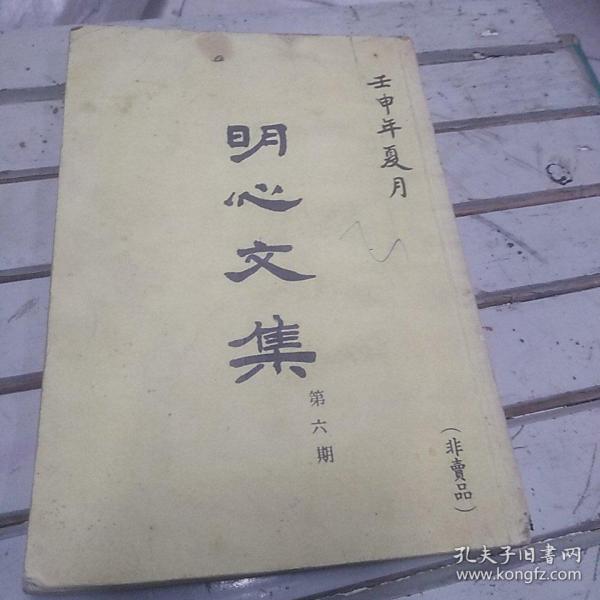 壬申年夏月
明心文集
第六期
（非賣品）
孔夫子旧书网
www.kongfz.com